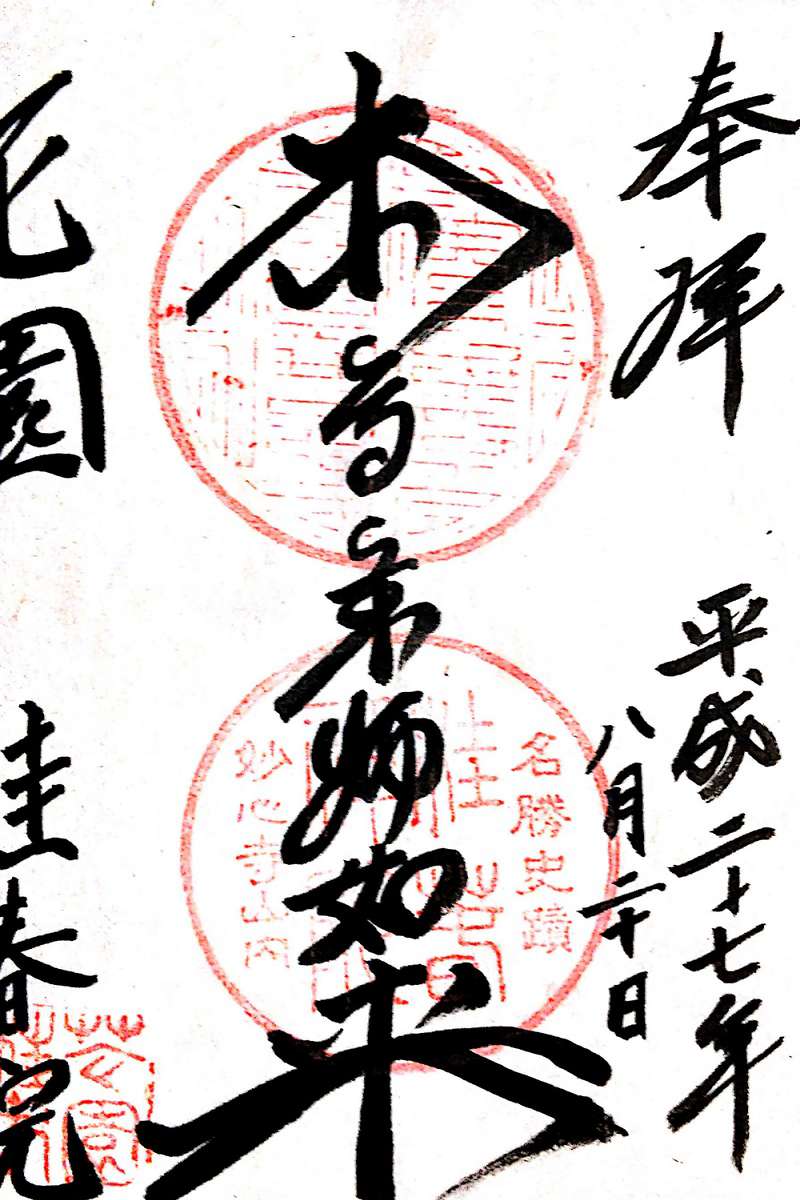 奉拝
平成二十七年
八月二十日
本尊薬師如来
名勝史蹟
妙心寺山内
花園 桂春院
花園